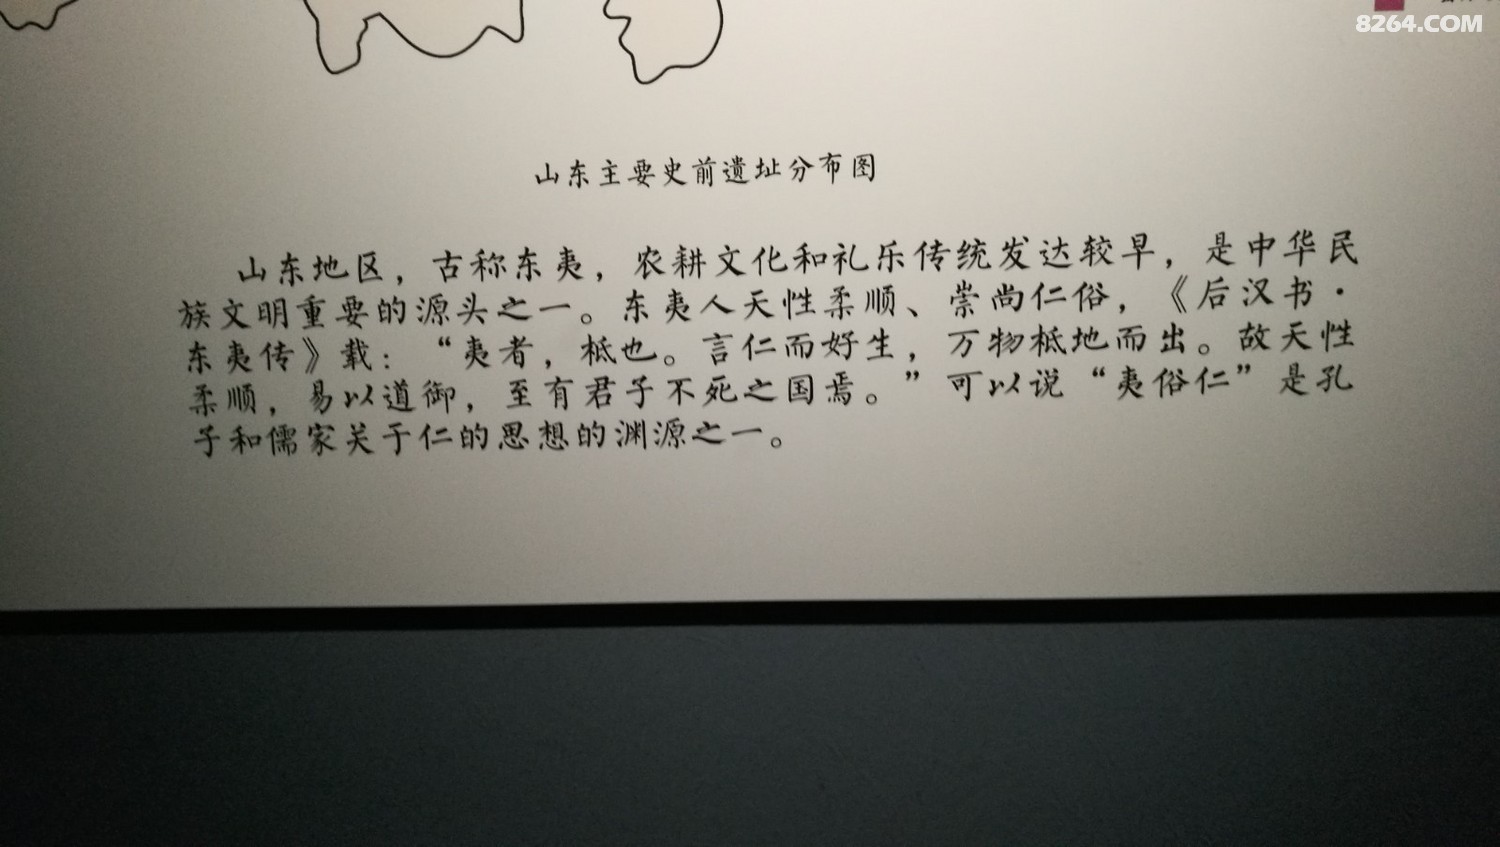 8264.COM
山东主要史前遗址分布图
山东地区，古称东夷，农耕文化和礼乐传统发达较早，是中华民
族文明重要的源头之一。东夷人天性柔顺、崇尚仁俗，《后汉书·
东夷传》载：“夷者，柢也。言仁而好生，万物柢地而出。故天性
柔顺，易以道御，至有君子不死之国焉。”可以说“夷俗仁”是孔
子和儒家关于仁的思想的渊源之一。